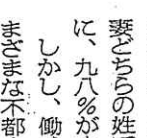 妻どちらの姓
に、九八%が
しかし、働
まざまな不都